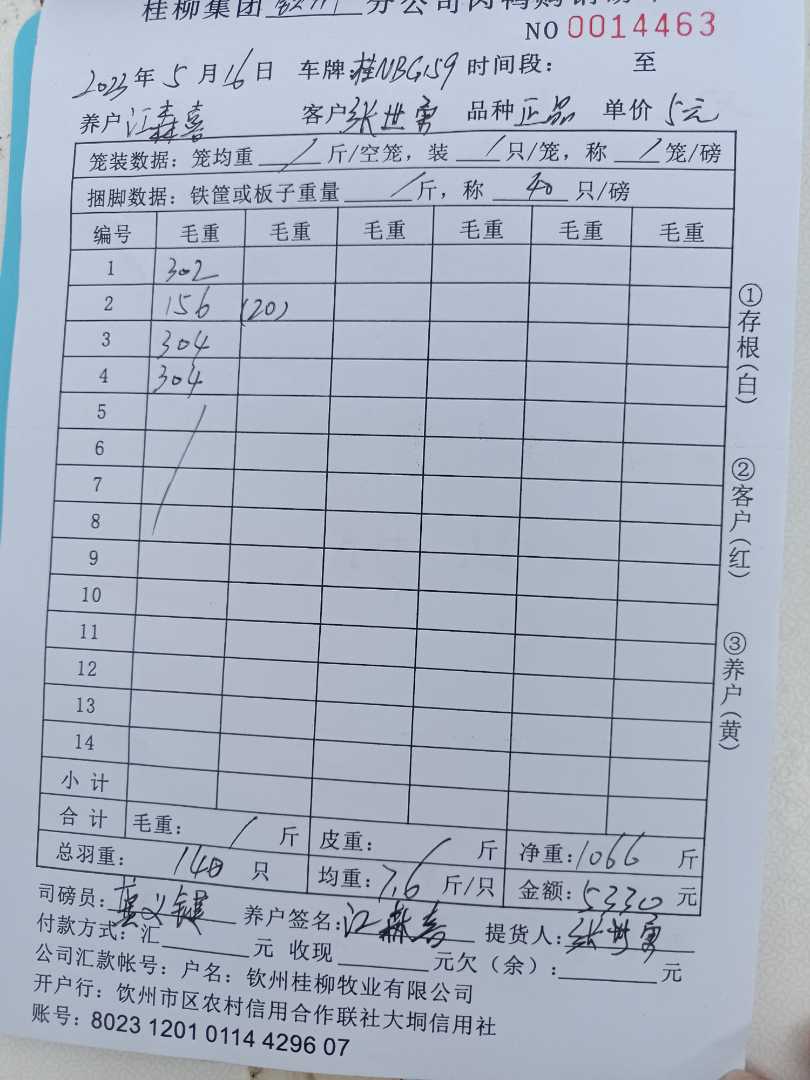 桂柳集团 钦州 分公司肉鸭购销
NO 0014463
2023年5月16日 车牌:桂NBG159 时间段: 至
养户 江森喜 客户 张世勇 品种 正品 单价 5元
笼装数据: 笼均重 / 斤/空笼, 装 / 只/笼, 称 / 笼/磅
捆脚数据: 铁筐或板子重量 / 斤, 称 40 只/磅
编号 毛重 毛重 毛重 毛重 毛重 毛重
1 302
2 156 (20)
3 304
4 304
5
6
7
8
9
10
11
12
13
14
小计
合计 毛重: / 斤 皮重: / 斤 净重: 1066 斤
总羽重: 140 只 均重: 7.6 斤/只 金额: 5330 元
司磅员: 养户签名: 江森喜 提货人: 张世勇
付款方式: 汇 元 收现 元欠(余): 元
公司汇款帐号: 户名: 钦州桂柳牧业有限公司
开户行: 钦州市区农村信用合作联社大垌信用社
账号: 8023 1201 0114 4296 07
①存根(白)
②客户(红)
③养户(黄)